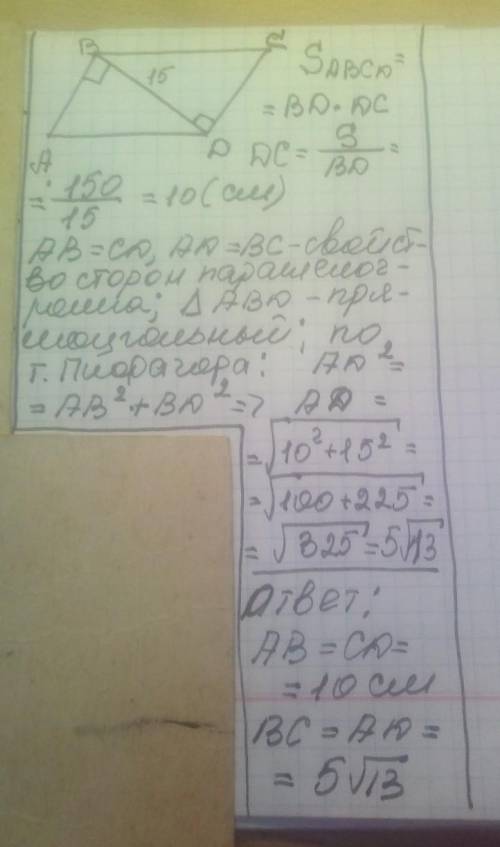 B 15 C
A D
S ABCD =
= BD · DC
DC = S/BD =
= 150/15 = 10 (см)
AB = CD, AD = BC - свойст-
во сторон параллелог-
рамма; Δ ABD - пря-
моугольный; по
т. Пифагора: AD² =
= AB² + BD² => AD =
= √10² + 15² =
= √100 + 225 =
= √325 = 5√13
Ответ:
AB = CD =
= 10 см
BC = AD =
= 5√13